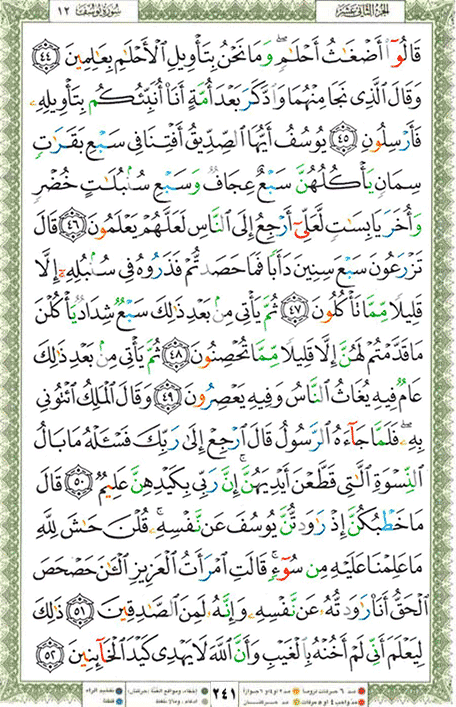 الجزء الثاني عشر
سورة يوسف
١٢
قَالُوٓا۟ أَضْغَٰثُ أَحْلَٰمٍۢ ۖ وَمَا نَحْنُ بِتَأْوِيلِ ٱلْأَحْلَٰمِ بِعَٰلِمِينَ ٤٤
وَقَالَ ٱلَّذِى نَجَا مِنْهُمَا وَٱدَّكَرَ بَعْدَ أُمَّةٍ أَنَا۠ أُنَبِّئُكُم بِتَأْوِيلِهِۦ
فَأَرْسِلُونِ ٤٥ يُوسُفُ أَيُّهَا ٱلصِّدِّيقُ أَفْتِنَا فِى سَبْعِ بَقَرَٰتٍۢ
سِمَانٍۢ يَأْكُلُهُنَّ سَبْعٌ عِجَافٌۭ وَسَبْعِ سُنۢبُلَٰتٍ خُضْرٍۢ
وَأُخَرَ يَابِسَٰتٍۢ لَّعَلِّىٓ أَرْجِعُ إِلَى ٱلنَّاسِ لَعَلَّهُمْ يَعْلَمُونَ ٤٦ قَالَ
تَزْرَعُونَ سَبْعَ سِنِينَ دَأَبًۭا فَمَا حَصَدتُّمْ فَذَرُوهُ فِى سُنۢبُلِهِۦٓ إِلَّا
قَلِيلًۭا مِّمَّا تَأْكُلُونَ ٤٧ ثُمَّ يَأْتِى مِنۢ بَعْدِ ذَٰلِكَ سَبْعٌۭ شِدَادٌۭ يَأْكُلْنَ
مَا قَدَّمْتُمْ لَهُنَّ إِلَّا قَلِيلًۭا مِّمَّا تُحْصِنُونَ ٤٨ ثُمَّ يَأْتِى مِنۢ بَعْدِ ذَٰلِكَ
عَامٌۭ فِيهِ يُغَاثُ ٱلنَّاسُ وَفِيهِ يَعْصِرُونَ ٤٩ وَقَالَ ٱلْمَلِكُ ٱئْتُونِى
بِهِۦ ۖ فَلَمَّا جَآءَهُ ٱلرَّسُولُ قَالَ ٱرْجِعْ إِلَىٰ رَبِّكَ فَسْـَٔلْهُ مَا بَالُ
ٱلنِّسْوَةِ ٱلَّٰتِى قَطَّعْنَ أَيْدِيَهُنَّ ۚ إِنَّ رَبِّى بِكَيْدِهِنَّ عَلِيمٌۭ ٥٠ قَالَ
مَا خَطْبُكُنَّ إِذْ رَٰوَدتُّنَّ يُوسُفَ عَن نَّفْسِهِۦ ۚ قُلْنَ حَٰشَ لِلَّهِ
مَا عَلِمْنَا عَلَيْهِ مِن سُوٓءٍۢ ۚ قَالَتِ ٱمْرَأَتُ ٱلْعَزِيزِ ٱلْـَٰٔنَ حَصْحَصَ
ٱلْحَقُّ أَنَا۠ رَٰوَدتُّهُۥ عَن نَّفْسِهِۦ وَإِنَّهُۥ لَمِنَ ٱلصَّٰدِقِينَ ٥١ ذَٰلِكَ
لِيَعْلَمَ أَنِّى لَمْ أَخُنْهُ بِٱلْغَيْبِ وَأَنَّ ٱللَّهَ لَا يَهْدِى كَيْدَ ٱلْخَآئِنِينَ ٥٢
٢٤١